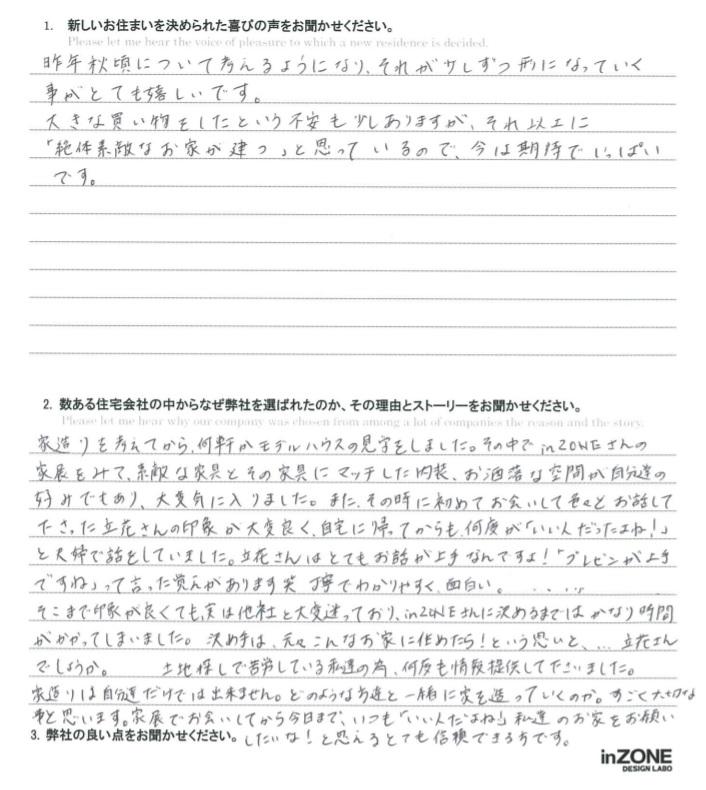 1. 新しいお住まいを決められた喜びの声をお聞かせください。
Please let me hear the voice of pleasure to which a new residence is decided.
昨年秋頃について考えるようになり、それが少しずつ形になっていく
事がとても嬉しいです。
大きな買い物をしたという不安も少しありますが、それ以上に
「絶体素敵なお家が建つ」と思っているので、今は期待でいっぱい
です。
2. 数ある住宅会社の中からなぜ弊社を選ばれたのか、その理由とストーリーをお聞かせください。
Please let me hear why our company was chosen from among a lot of companies the reason and the story.
家造りを考えてから、何軒かモデルハウスの見学をしました。その中でinZONEさんの
家展をみて、素敵な家具とその家具にマッチした内装、お洒落な空間が自分達の
好みでもあり、大変気に入りました。また、その時に初めてお会いして色々とお話して
下さった立花さんの印象が大変良く、自宅に帰ってからも、何度が「いい人だったよね!」
と夫婦で話をしていました。立花さんはとてもお話が上手なんですよ!「プレゼンが上手
ですね」って言った覚えがあります笑 丁寧でわかりやすく、面白い。 ....
そこまで印象が良くても、実は他社と大変迷っており、inZONEさんに決めるまではかなり時間
がかかってしまいました。 決め手は、元々こんなお家に住めたら!という思いと、... 立花さん
でしょうか。 土地探しで苦労している私達の為、何度も情報提供して下さいました。
家造りは自分達だけでは出来ません。どのようなお達と一緒に家を造っていくのか。すごく大切な
事と思います。家展でお会いしてから今日まで、いつも「いい人だよね」私達のお家をお願い
3. 弊社の良い点をお聞かせください。 したいな!と思えるとても信頼できる方です。
inZONE
DESIGN LABO